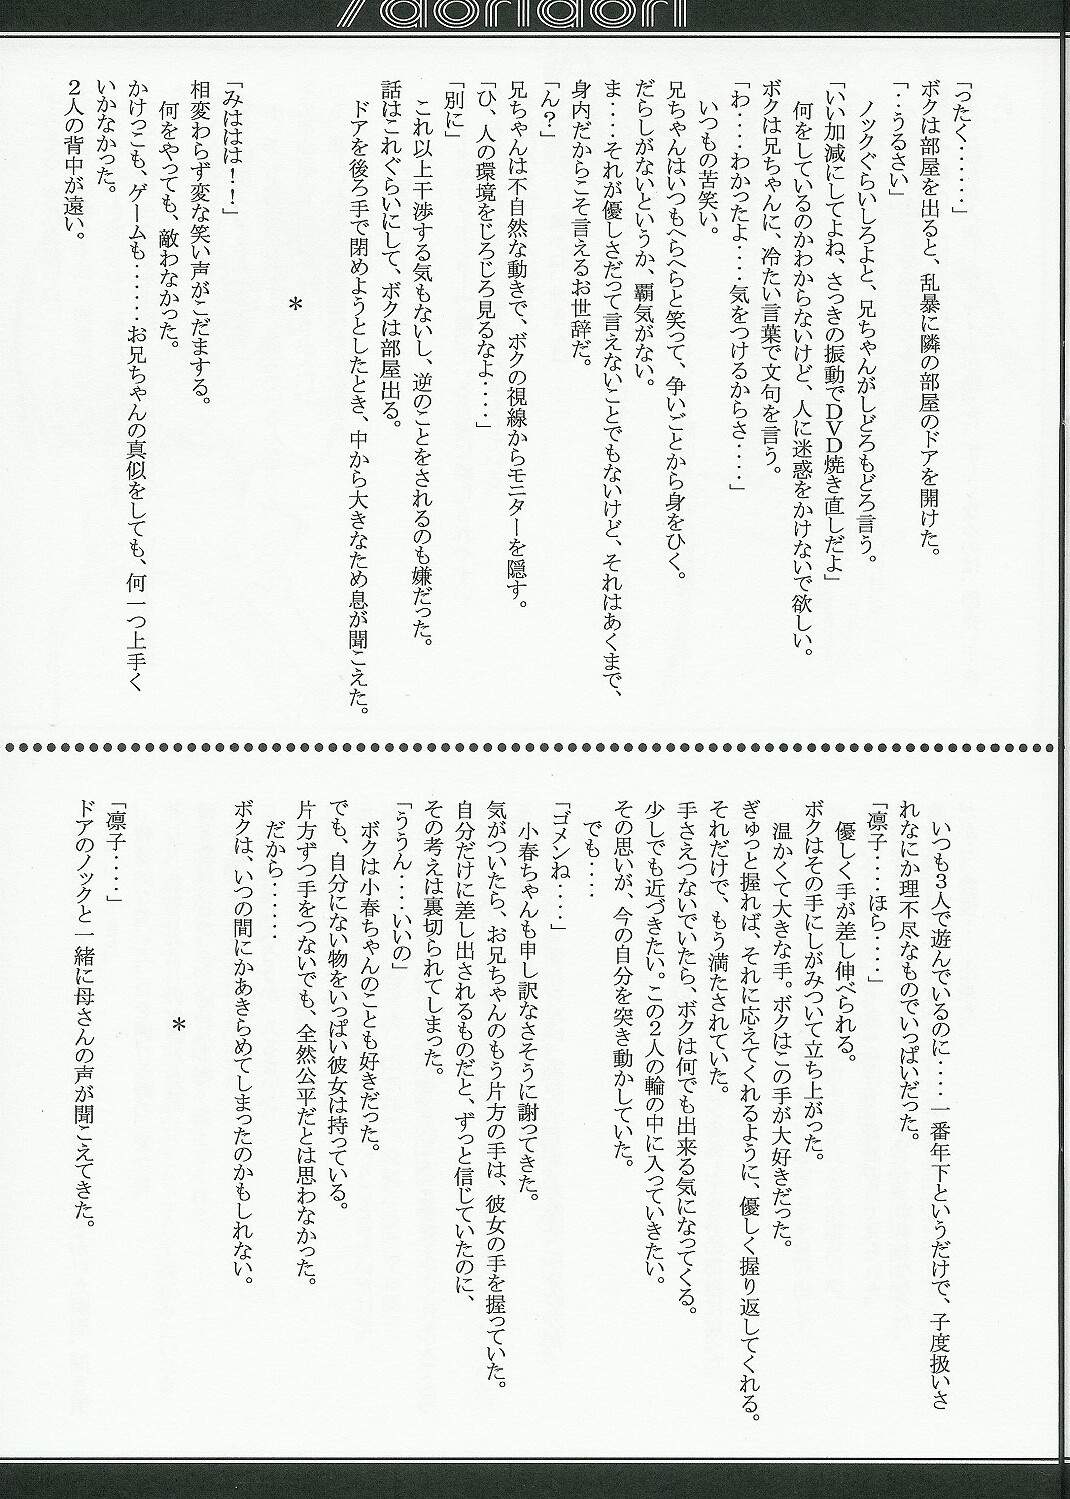 「ったく・・・・・・」
ボクは部屋を出ると、乱暴に隣の部屋のドアを開けた。
「・・うるさい」
ノックぐらいしろよと、兄ちゃんがしどろもどろ言う。
「いい加減にしてよね、さっきの振動でDVD焼き直しだよ」
何をしているのかわからないけど、人に迷惑をかけないで欲しい。
ボクは兄ちゃんに、冷たい言葉で文句を言う。
「わ・・・・わかったよ・・・・気をつけるからさ・・・・」
いつもの苦笑い。
兄ちゃんはいつもへらへらと笑って、争いごとから身をひく。
だらしがないというか、覇気がない。
ま・・・・それが優しさだって言えないことでもないけど、それはあくまで、
身内だからこそ言えるお世辞だ。
「ん？」
兄ちゃんは不自然な動きで、ボクの視線からモニターを隠す。
「ひ、人の環境をじろじろ見るなよ・・・・」
「別に」
これ以上干渉する気もないし、逆のことをされるのも嫌だった。
話はこれぐらいにして、ボクは部屋出る。
ドアを後ろ手で閉めようとしたとき、中から大きなため息が聞こえた。
＊
「みははは！！」
相変わらず変な笑い声がこだまする。
何をやっても、敵わなかった。
かけっこも、ゲームも・・・・・お兄ちゃんの真似をしても、何一つ上手く
いかなかった。
２人の背中が遠い。
いつも３人で遊んでいるのに・・・・一番年下というだけで、子度扱いさ
れなにか理不尽なものでいっぱいだった。
「凛子・・・・ほら・・・・」
優しく手が差し伸べられる。
ボクはその手にしがみついて立ち上がった。
温かくて大きな手。ボクはこの手が大好きだった。
ぎゅっと握れば、それに応えてくれるように、優しく握り返してくれる。
それだけで、もう満たされていた。
手さえつないでいたら、ボクは何でも出来る気になってくる。
少しでも近づきたい。この２人の輪の中に入っていきたい。
その思いが、今の自分を突き動かしていた。
でも・・・・
「ゴメンね・・・・」
小春ちゃんも申し訳なさそうに謝ってきた。
気がついたら、お兄ちゃんのもう片方の手は、彼女の手を握っていた。
自分だけに差し出されるものだと、ずっと信じていたのに、
その考えは裏切られてしまった。
「ううん・・・・いいの」
ボクは小春ちゃんのことも好きだった。
でも、自分にない物をいっぱい彼女は持っている。
片方ずつ手をつないでも、全然公平だとは思わなかった。
だから・・・・・
ボクは、いつの間にかあきらめてしまったのかもしれない。
＊
「凛子・・・・」
ドアのノックと一緒に母さんの声が聞こえてきた。